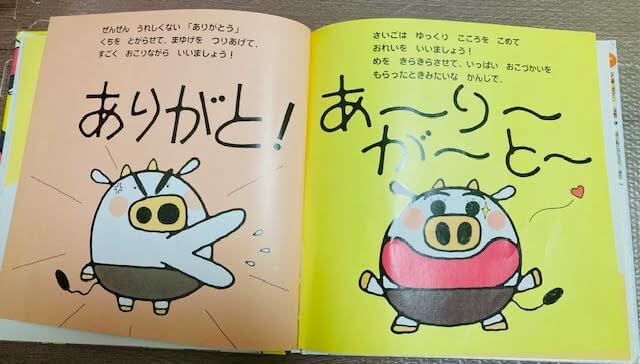 ぜんぜん うれしくない「ありがとう」
くちを とがらせて、まゆげを つりあげて、
すごく おこりながら いいましょう！
ありがと！
さいごは ゆっくり こころを こめて
おれいを いいましょう！
めを きらきらさせて、いっぱい おこづかいを
もらったときみたいな かんじで、
あ〜り〜
が〜と〜